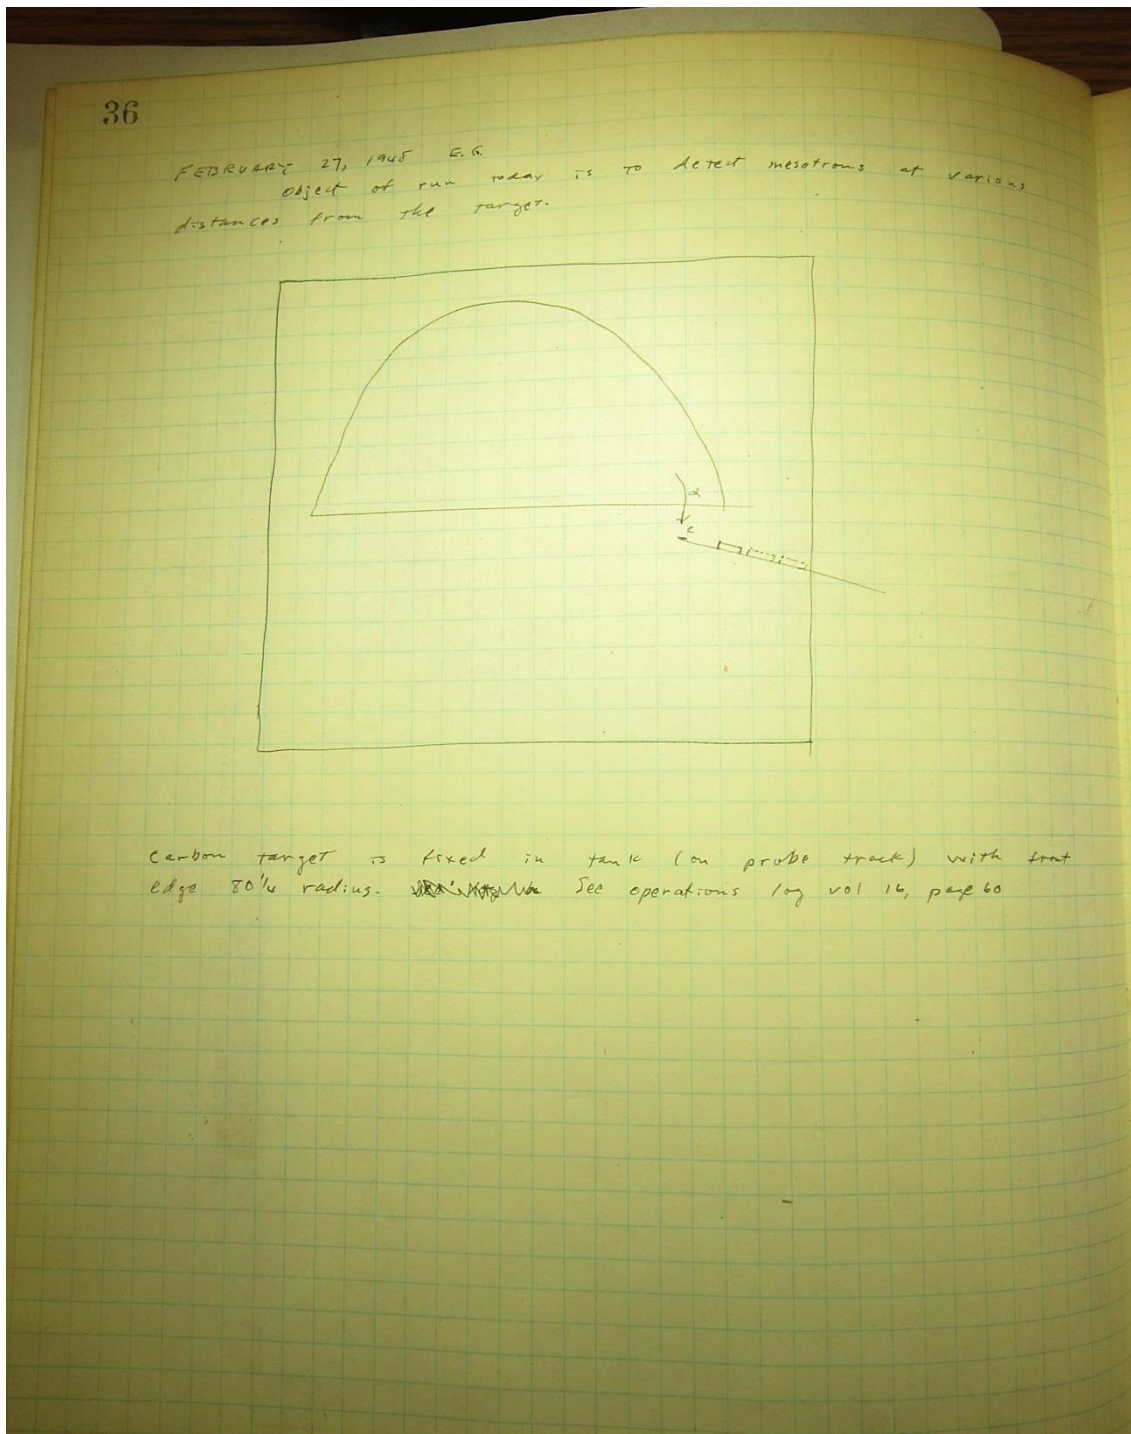 36
FEBRUARY 27, 1948 E.G.
Object of run today is to detect mesotrons at various
distances from the target.
α
c
Carbon target is fixed in tank (on probe track) with front
edge 80 1/4 radius. See operations log vol 16, page 60